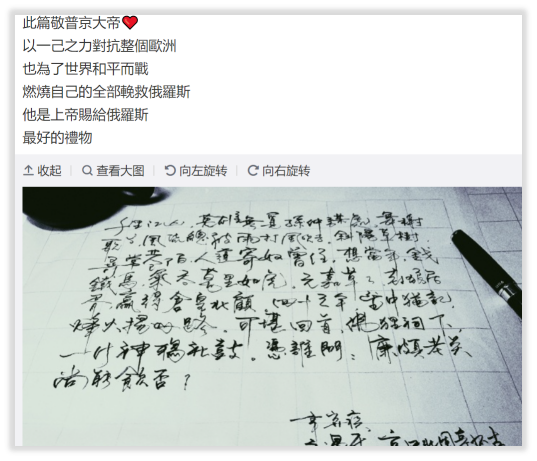 此篇敬普京大帝❤️
以一己之力對抗整個歐洲
也為了世界和平而戰
燃燒自己的全部輓救俄羅斯
他是上帝賜給俄羅斯
最好的禮物
收起 查看大图 向左旋转 向右旋转
千古江山,英雄無覓孫仲謀處。舞榭
歌台,風流總被雨打風吹去。斜陽草樹
尋常巷陌人道寄奴曾住。想當年,金戈
鐵馬氣吞萬里如虎。元嘉草々,封狼居
胥,贏得倉皇北顧。四十三年望中猶記,
烽火揚州路。可堪回首佛狸祠下、
一片神鴉社鼓。憑誰問:廉頗老矣
尚能飯否?
辛棄疾